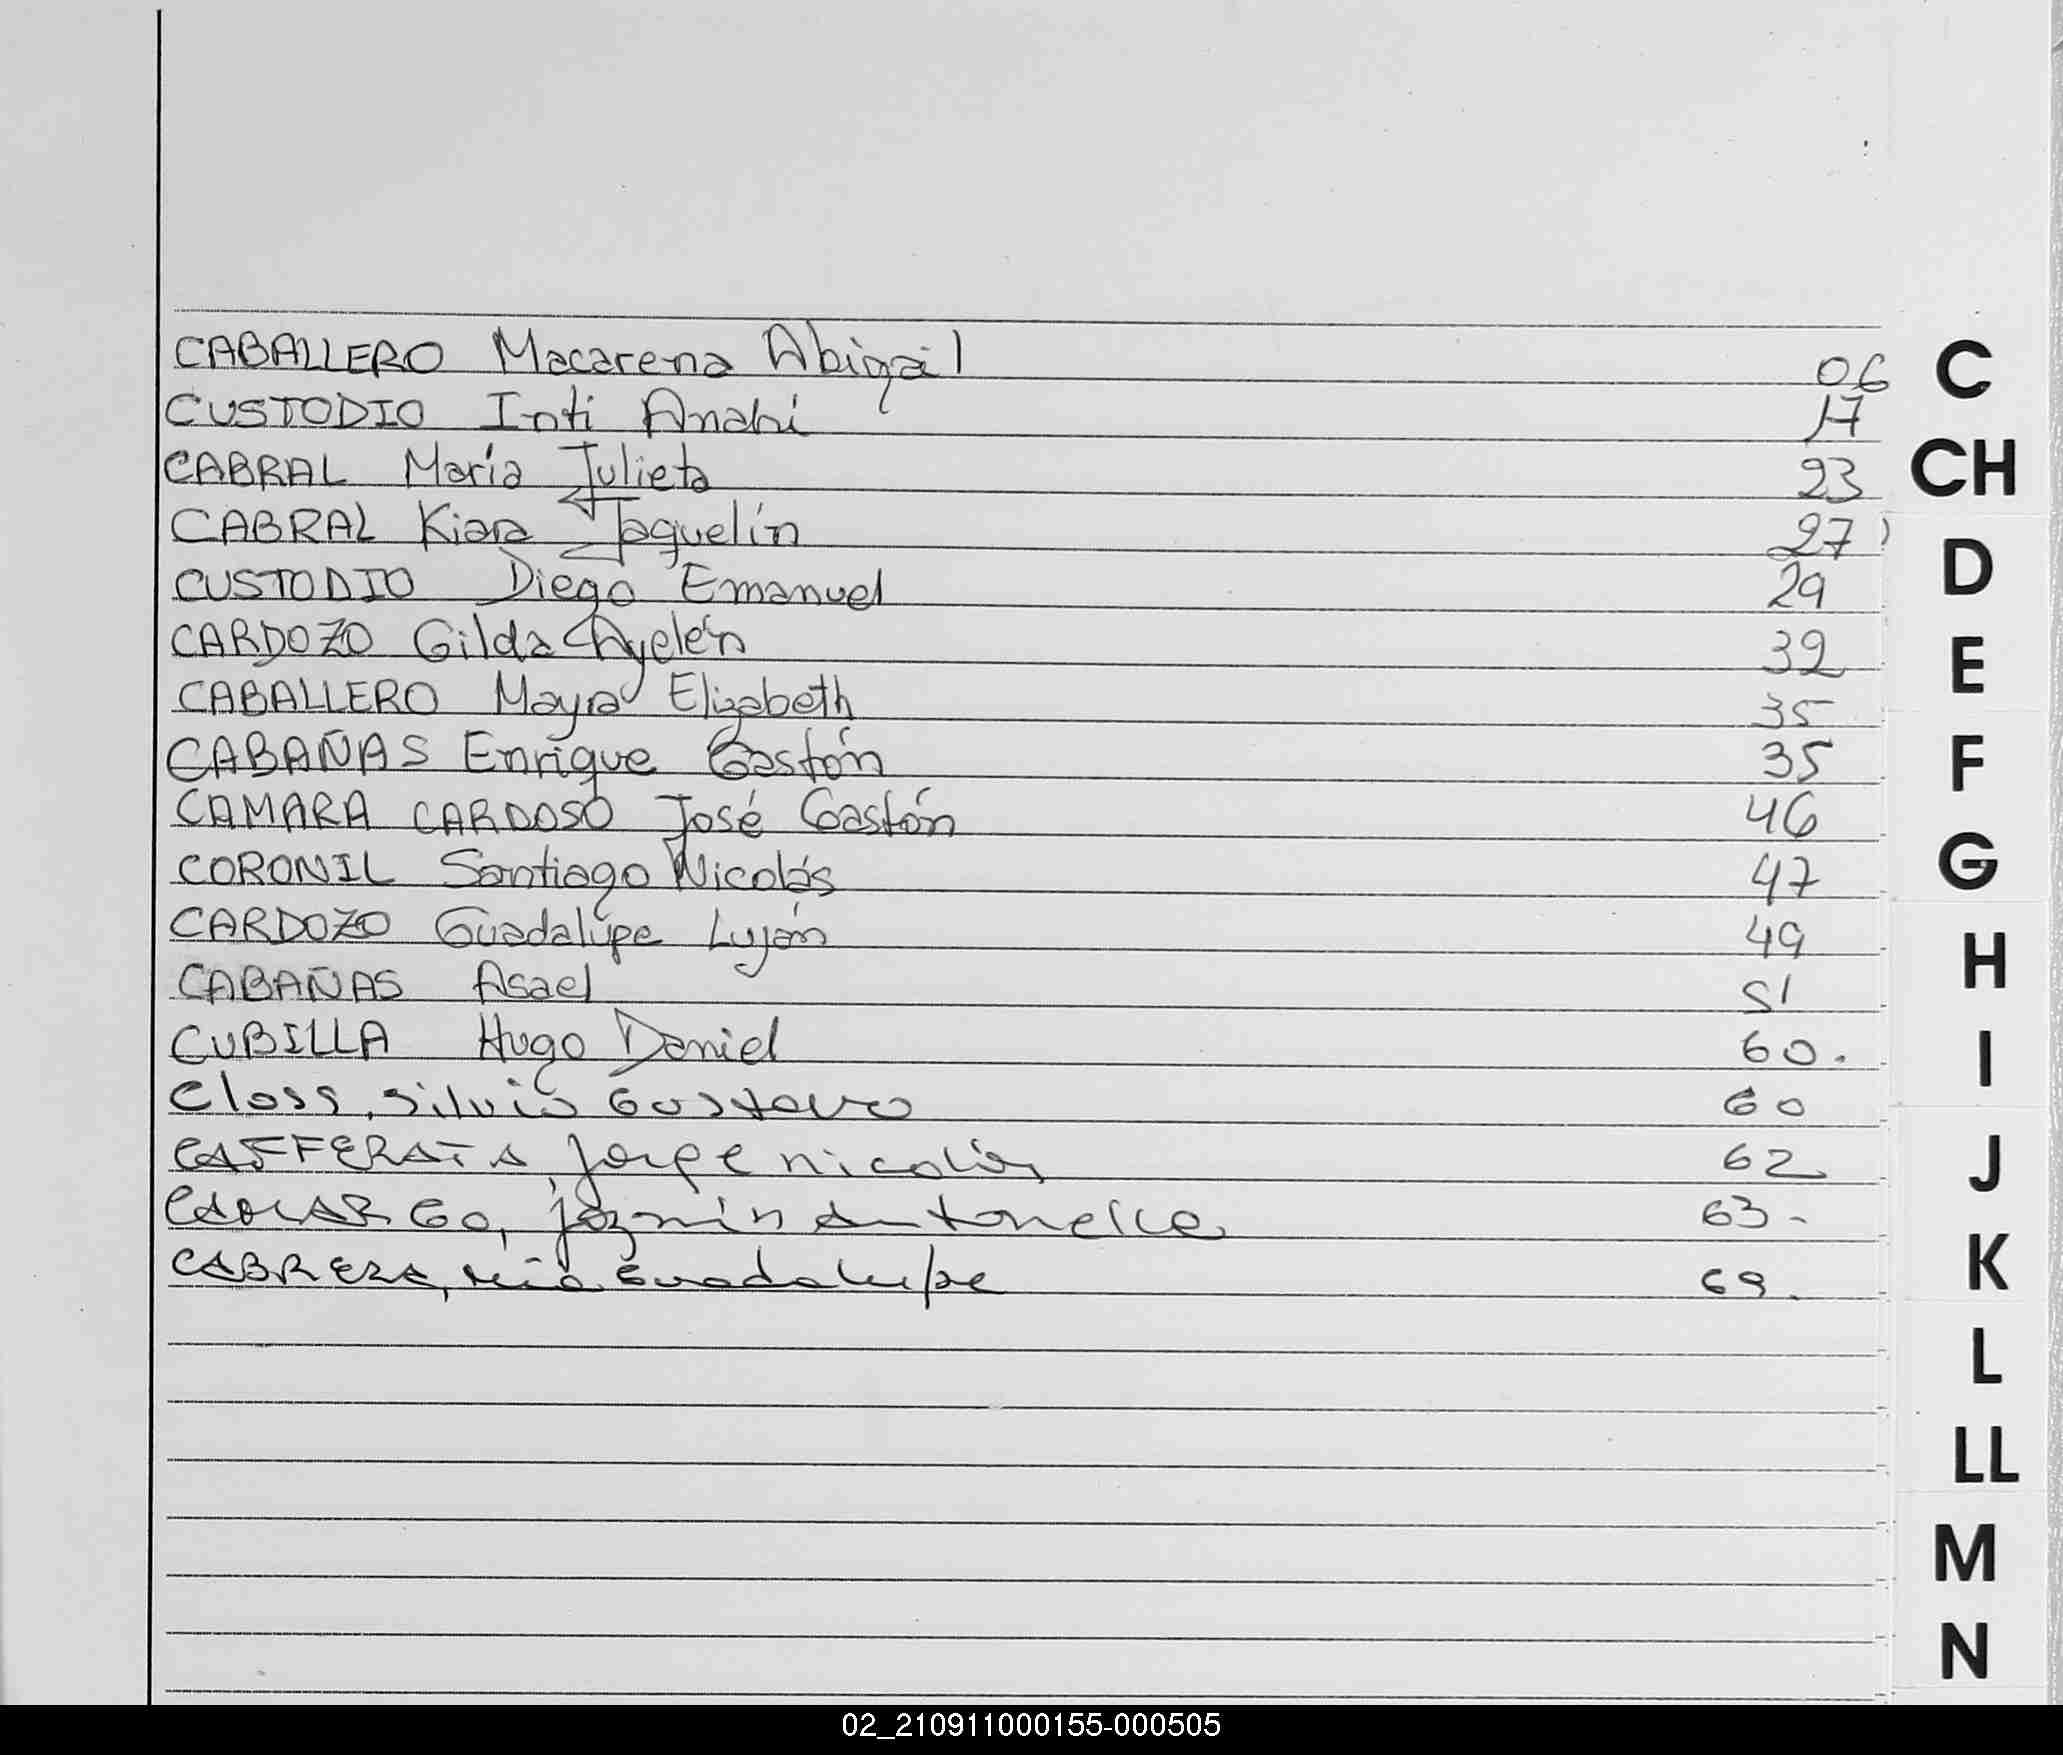 CABALLERO Macarena Abigail 06 C
CUSTODIO Inti Anahi 17
CABRAL María Julieta 23 CH
CABRAL Kiara Jaquelín 27
CUSTODIO Diego Emanuel 29 D
CARDOZO Gilda Ayelén 32 E
CABALLERO Mayra Elizabeth 35
CABAÑAS Enrique Gastón 35 F
CAMARA CARDOSO José Gastón 46
CORONIL Santiago Nicolás 47 G
CARDOZO Guadalupe Luján 49 H
CABAÑAS Asael 51
CUBILLA Hugo Daniel 60. I
Closs, Silvio Gustavo 60
CAFFERATA, Jorge nicolás 62 J
jazmín Antonella 63-
CABRERA, mia Guadalupe 69. K
L
LL
M
N
02_210911000155-000505